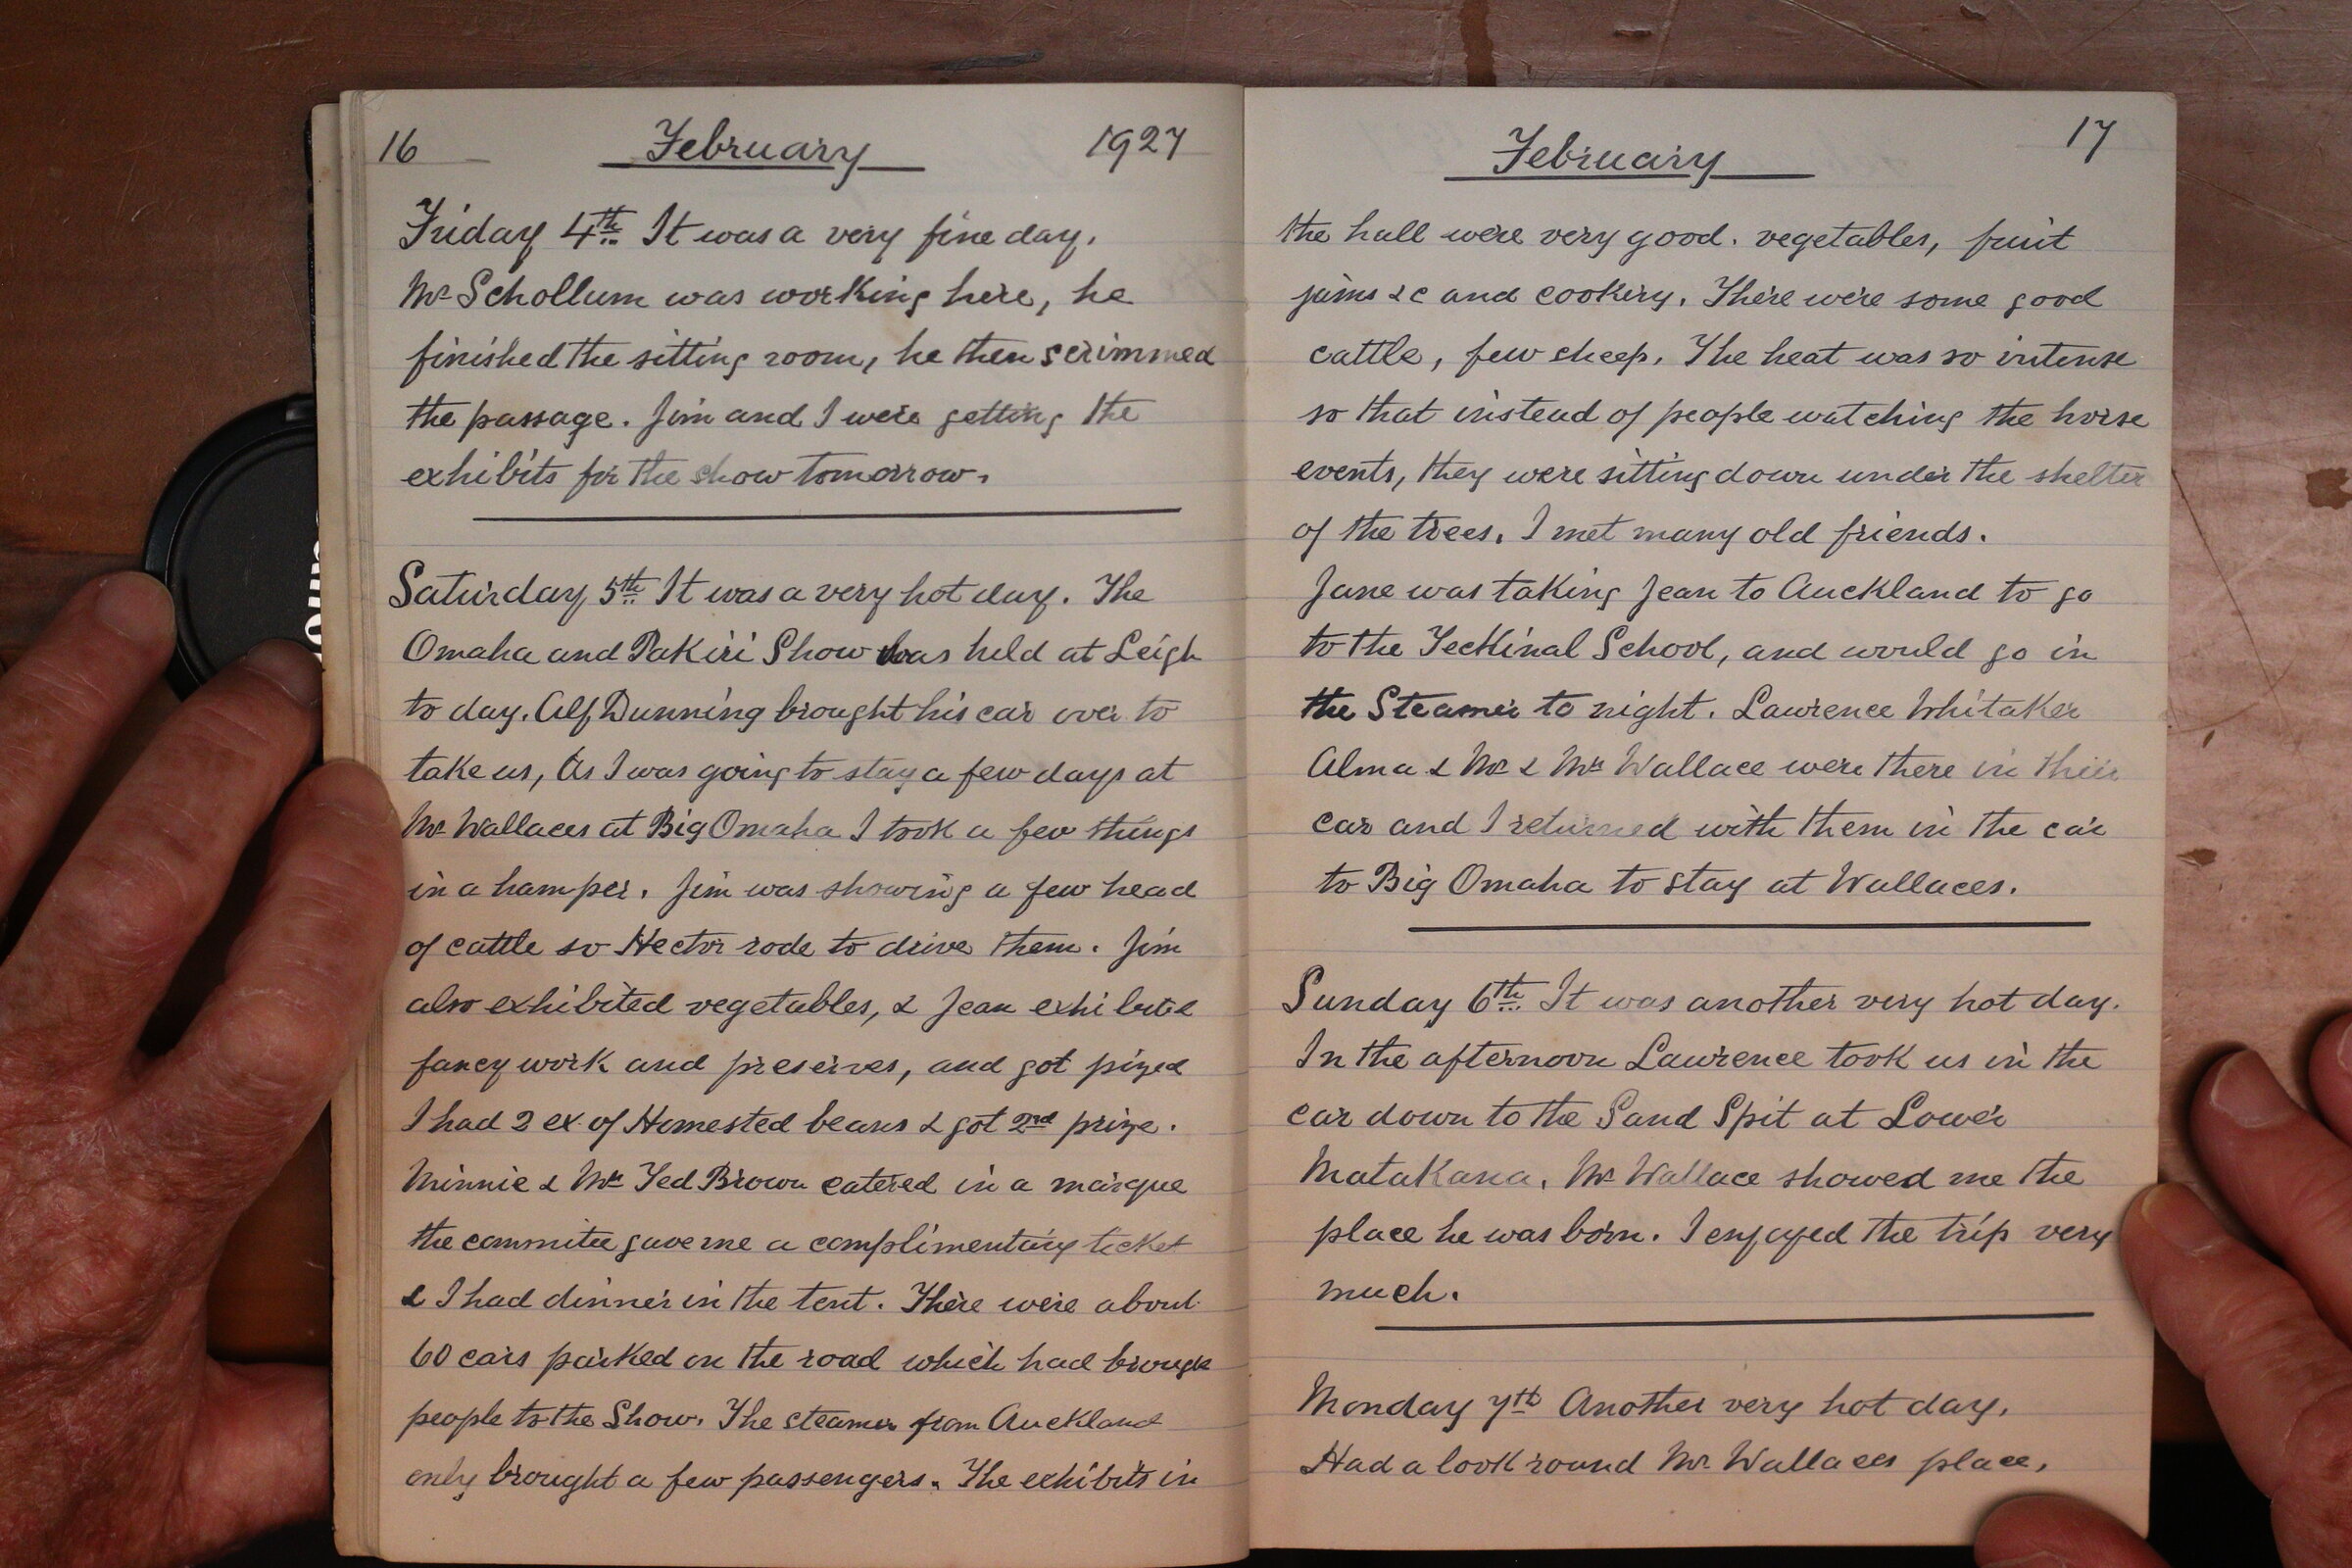 16 February 1927
Friday 4th. It was a very fine day.
Mr Schollum was working here, he
finished the sitting room, he then scrimmed
the passage. Jim and I were getting the
exhibits for the show tomorrow.
Saturday 5th. It was a very hot day. The
Omaha and Pakiri Show was held at Leigh
to day. Alf Dunning brought his car over to
take us, As I was going to stay a few days at
Mr Wallaces at Big Omaha I took a few things
in a hamper. Jim was showing a few head
of cattle so Hector rode to drive them. Jim
also exhibited vegetables, & Jean exhibited
fancy work and preserves, and got prized
I had 2 ex. of Homested beans & got 2nd prize.
Minnie & Mrs Ted Brown catered in a marque
the commitee gave me a complimentary ticket
& I had dinner in the tent. There were about
60 cars parked on the road which had brough
people to the Show. The steamer from Auckland
only brought a few passengers. The exhibits in
February 17
the hall were very good. vegetables, fruit
jams &c and cookery. There were some good
cattle, few sheep. The heat was so intense
so that instead of people watching the horse
events, they were sitting down under the shelter
of the trees. I met many old friends.
Jane was taking Jean to Auckland to go
to the Teckinal School, and would go in
the Steamer to night. Lawrence Whitaker
Alma & Mr & Mrs Wallace were there in their
car and I returned with them in the car
to Big Omaha to stay at Wallaces.
Sunday 6th. It was another very hot day.
In the afternoon Lawrence took us in the
car down to the Sand Spit at Lower
Matakana. Mr Wallace showed me the
place he was born. I enjoyed the trip very
much.
Monday 7th Another very hot day.
Had a look round Mr Wallaces place.